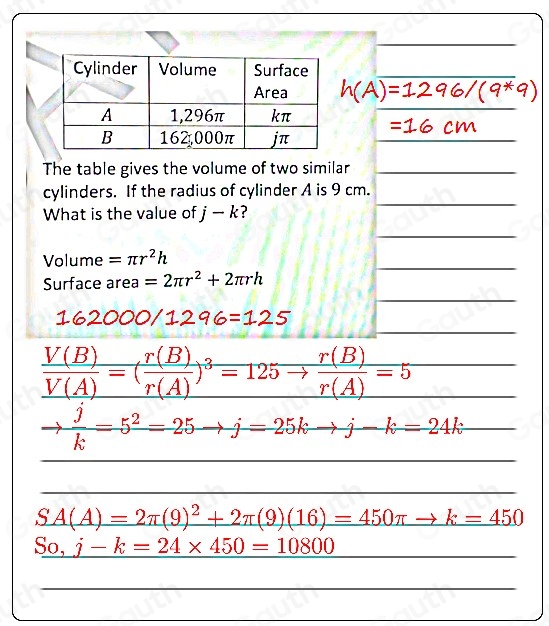 Cylinder Volume Surface Area
A 1,296π kπ
B 162,000π jπ
The table gives the volume of two similar
cylinders. If the radius of cylinder A is 9 cm.
What is the value of j − k?
Volume = πr²h
Surface area = 2πr² + 2πrh
h(A)=1296/(9*9)
=16 cm
162000/1296=125
V(B)/V(A) = (r(B)/r(A))³ = 125 → r(B)/r(A) = 5
→ j/k = 5² = 25 → j = 25k → j − k = 24k
SA(A) = 2π(9)² + 2π(9)(16) = 450π → k = 450
So, j − k = 24 × 450 = 10800